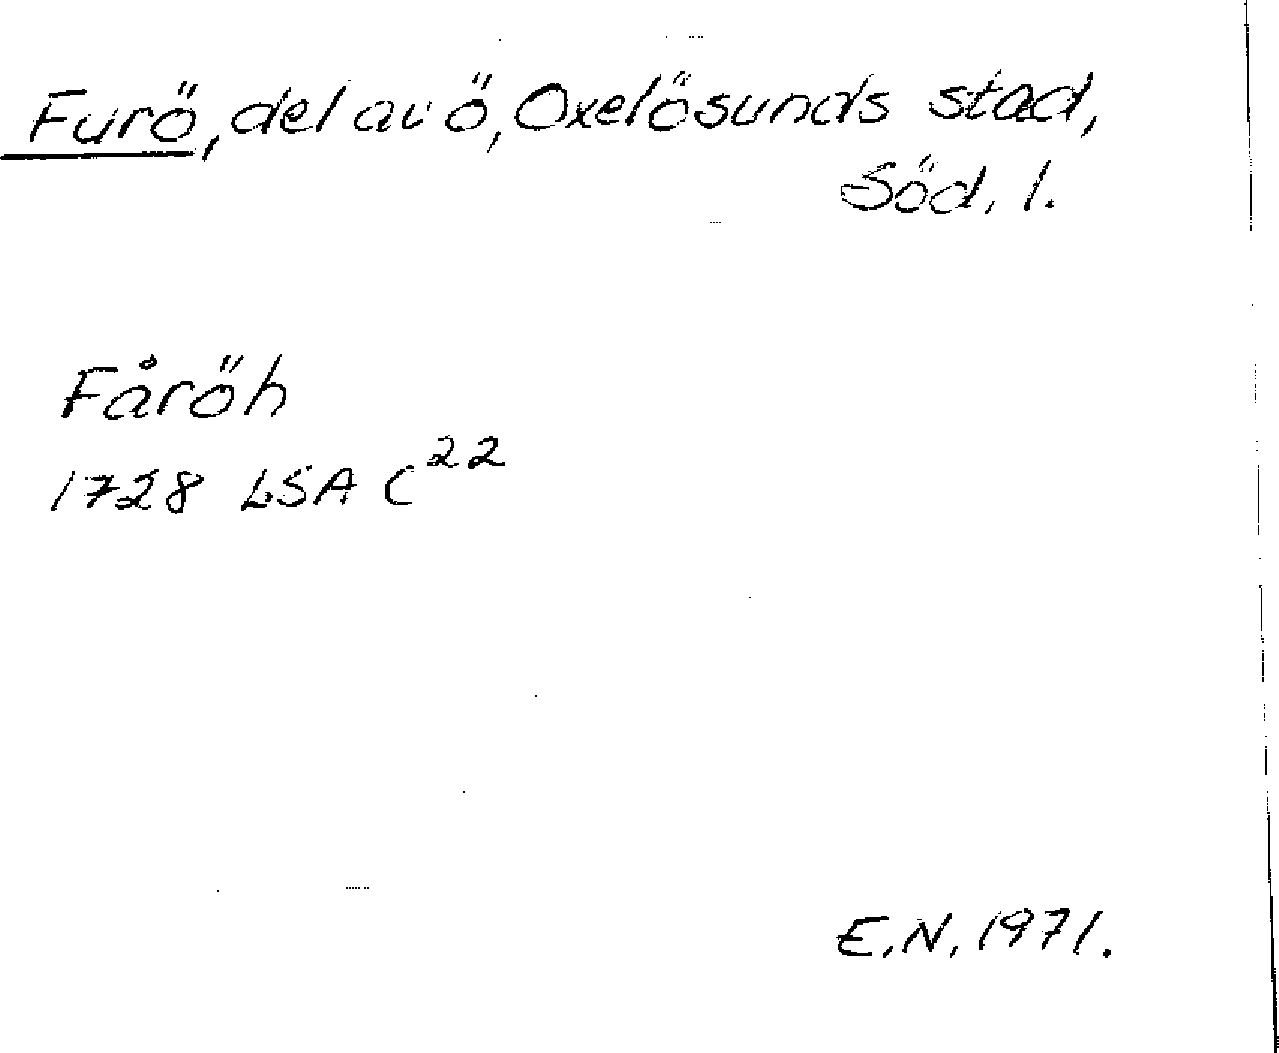 Furö, del av ö, Oxelösunds stad,
Söd. l.
Fåröh
1728 LSA C22
E.N. 1971.